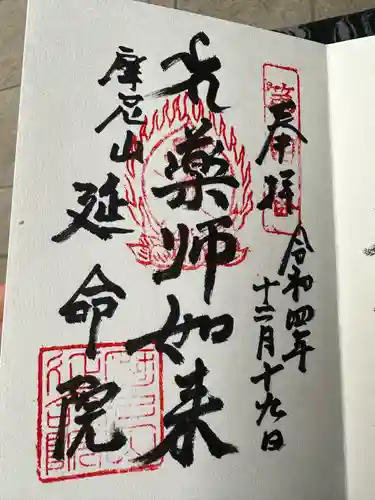 奉拝
令和四年
十二月十九日
薬师如来
摩尼山
延命院